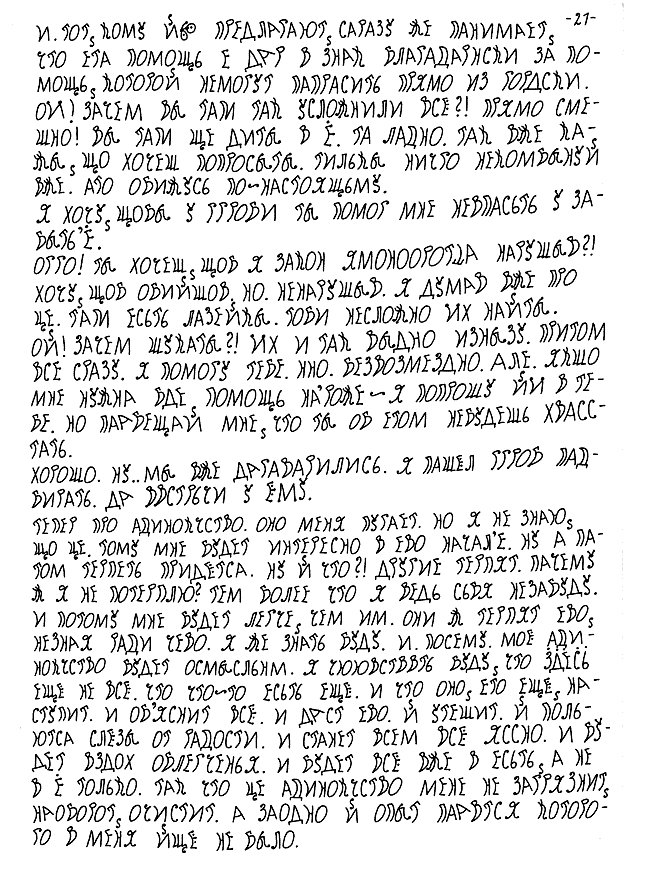 -21-
И. ТОТ, КОМУ ЙО ПРЕДЛАГАЮТ, САРАЗУ ЖЕ ПАНИМАЕТ,
ЧТО ЕТА ПОМОЩЬ Е ДАР В ЗНАК БЛАГАДАРНСКИ ЗА ПО-
МОЩЬ, КОТОРОЙ НЕМОГУТ ПАПРАСИТЬ ПРЯМО ИЗ ГОРДСКИ.
ОЙ! ЗАЧЕМ ВЫ ТАМ ТАК УСЛОЖНИЛИ ВСЕ?! ПРЯМО СМЕ-
ШНО! ВЫ ТАМ ЩЕ ДИТЫ В Ё. ТА ЛАДНО. ТАК ВЖЕ КА-
ЖЫ, ЩО ХОЧЕШ ПОПРОСЫТЫ. ТИЛЬКЫ НИЧТО НЕКОМБЫНУЙ
ВЖЕ. АТО ОБИЖУСЬ ПО-НАСТОЯЩЬМУ.
Я ХОЧУ, ЩОБЫ У ГГРОБИ ТЫ ПОМОГ МНЕ НЕВПАСЬТЬ У ЗА-
БЫТЬ'Ё.
ОГГО! ТЫ ХОТЕЩ, ЩОБ Я ЗАКОН ЯМОНООРОТЦА НАРУШЫВ?!
ХОЧУ, ЩОБ ОБИЙШОВ, НО. НЕНАРУШЫВ. Я ДУМАВ ВЖЕ ПРО
ЦЕ. ТАМ ЕСЬТЬ ЛАЗЕЙКЫ. ТОБИ НЕСЛОЖНО ИХ НАЙТЫ.
ОЙ! ЗАЧЕМ ШУКАТЫ?! ИХ И ТАК ВЫДНО ИЗНАЗУ. ПРИТОМ
ВСЕ СРАЗУ. Я ПОМОГУ ТЕБЕ. ННО. БЕЗВОЗМЕЗДНО. АЛЕ. ЯКЩО
МНЕ НУЖНА БДЕ, ПОМОЩЬ НА'РОЖЕ - Я ПОПРОШУ ЙЙ В ТЕ-
БЕ. НО ПАРВЕЩАЙ МНЕ, ЧТО ТЫ ОБ ЕТОМ НЕБУДЕШЬ ХВАСС-
ТАТЬ.
ХОРОШО. НУ.. МЫ ВЖЕ ДАГАВАРИЛИСЬ. Я ПАШЕЛ ГГРОБ ПАД-
БИРАТЬ. ДАР ВВСТРЫЧИ У ЁМУ.
ТЕПЕР ПРО АДИНОКЧСТВО. ОНО МЕНЯ ПУГАЕТ. НО Я НЕ ЗНАЮ,
ЩО ЦЕ. ТОМУ МНЕ БУДЕТ ИНТЕРЕСНО В ЕВО НАЧАЛ'Е. НУ А ПА-
ТОМ ТЕРПЕТЬ ПРИДЕТСА. НУ Й ЧТО?! ДРУГИЕ ТЕРПЯТ. ПАЧЕМУ
Ж Я НЕ ПОТЕРПЛЮ? ТЕМ БОЛЕЕ ЧТО Я ВЕДЬ СЬБЯ НЕЗАБУДУ.
И ПОТОМУ МНЕ БУДЕТ ЛЕГЧЕ, ЧЕМ ИМ. ОНИ Ж ТЕРПЯТ ЕВО,
НЕЗНАЯ РАДИ ЧЕВО. Я ЖЕ ЗНАТЬ БУДУ. И. ПОСЕМУ. МОЕ АДИ-
НОКЧСТВО БУДЕТ ОСМЫСЛЬНМ. Я ЧЮЮВСТВВТЬ БУДУ, ЧТО ЗДЕСЬ
ЕЩЕ НЕ ВСЁ. ЧТО ЧТО-ТО ЕСЬТЬ ЕЩЕ. И ЧТО ОНО, ЕТО ЕЩЕ, НА-
СТУПИТ. И ОБ'ЯСНИТ ВСЕ. И ДАСТ ЕВО. Й УТЕШИТ. Й ПОЛЬ-
ЮТСА СЛЕЗЫ ОТ РАДОСТИ. И СТАНЕТ ВСЕМ ВСЁ ЯССНО. И БУ-
ДЕТ ВЗДОХ ОБЛЕГЧЕНЬЯ. И БУДЕТ ВСЁ ВЖЕ В ЕСЬТЬ, А НЕ
В Ё ТОЛЬКО. ТАК ЧТО ЦЕ АДИНОКЧСТВО МЕНЕ НЕ ЗАГРЯЗНИТ,
НАОБОРОТ, ОЧИСТИТ. А ЗАОДНО Й ОПЫТ ПАРВТСЯ КОТОРО-
ГО В МЕНЯ ЙЩЕ НЕ БЫЛО.